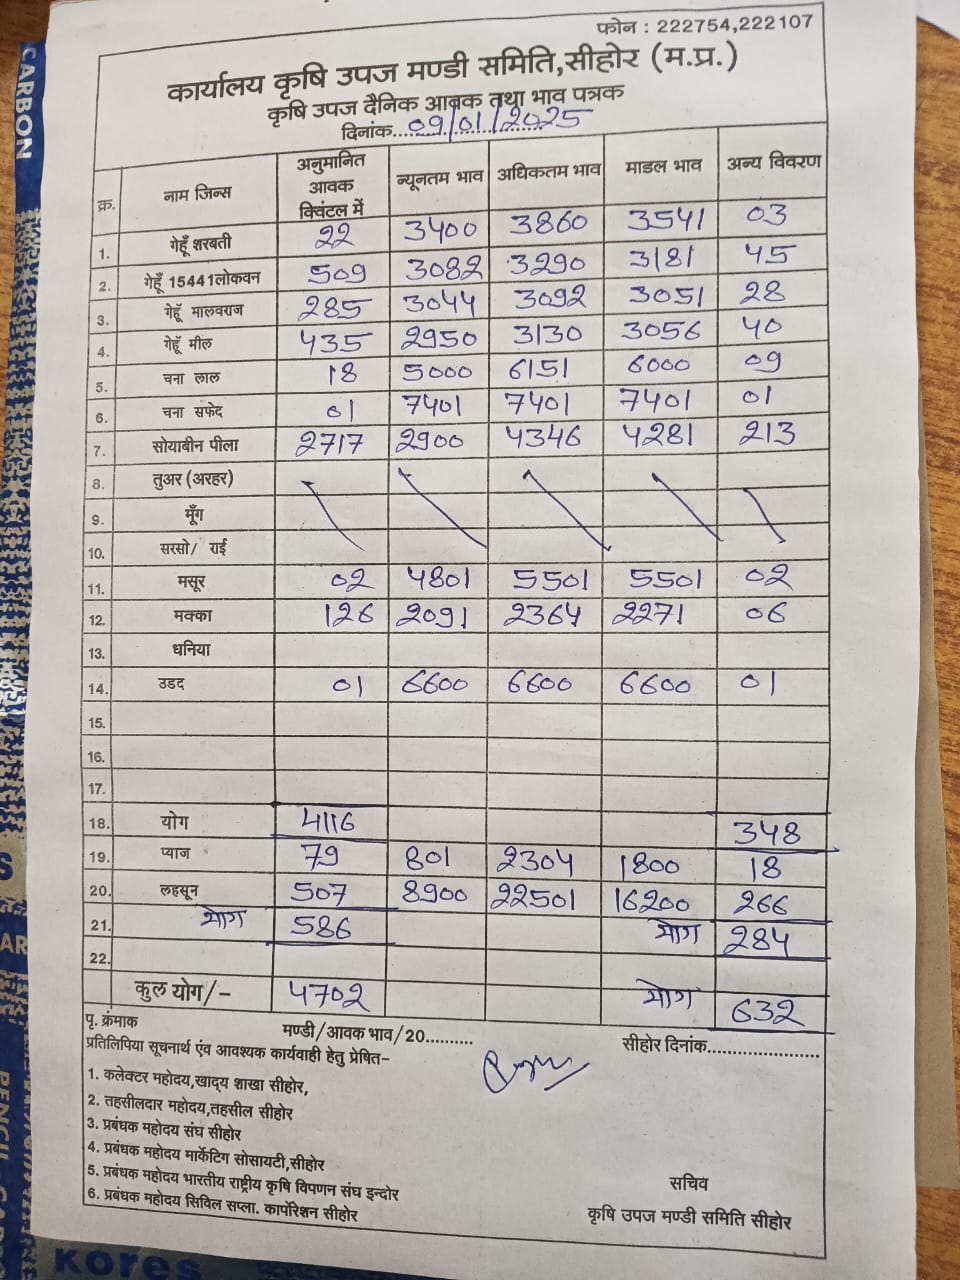 फोन : 222754,222107
कार्यालय कृषि उपज मण्डी समिति,सीहोर (म.प्र.)
कृषि उपज दैनिक आवक तथा भाव पत्रक
दिनांक....09/01/2025
क्र. नाम जिन्स अनुमानित आवक क्विंटल में न्यूनतम भाव अधिकतम भाव माडल भाव अन्य विवरण
1. गेहूँ शरबती 22 3400 3860 3541 03
2. गेहूँ 15441लोकवन 509 3082 3290 3181 45
3. गेहूँ मालवराज 285 3044 3092 3051 28
4. गेहूँ मील 435 2950 3130 3056 40
5. चना लाल 18 5000 6151 6000 09
6. चना सफेद 01 7401 7401 7401 01
7. सोयाबीन पीला 2717 2900 4346 4281 213
8. तुअर (अरहर)
9. मूँग
10. सरसो/ राई
11. मसूर 02 4801 5501 5501 02
12. मक्का 126 2091 2364 2271 06
13. धनिया
14. उडद 01 6600 6600 6600 01
15.
16.
17.
18. योग 4116 348
19. प्याज 79 801 2304 1800 18
20. लहसून 507 8900 22501 16200 266
21. योग 586 योग 284
22.
कुल योग/- 4702 योग 632
पृ. क्रंमाक मण्डी/आवक भाव/20.......... सीहोर दिनांक......................
प्रतिलिपिया सूचनार्थ एंव आवश्यक कार्यवाही हेतु प्रेषित–
1. कलेक्टर महोदय,खाद्य शाखा सीहोर,
2. तहसीलदार महोदय,तहसील सीहोर
3. प्रबंधक महोदय संघ सीहोर
4. प्रबंधक महोदय मार्केटिग सोसायटी,सीहोर
5. प्रबंधक महोदय भारतीय राष्ट्रीय कृषि विपणन संघ इन्दोर
6. प्रबंधक महोदय सिविल सप्ला. कार्पोरेशन सीहोर
सचिव
कृषि उपज मण्डी समिति सीहोर
CARBON
kores